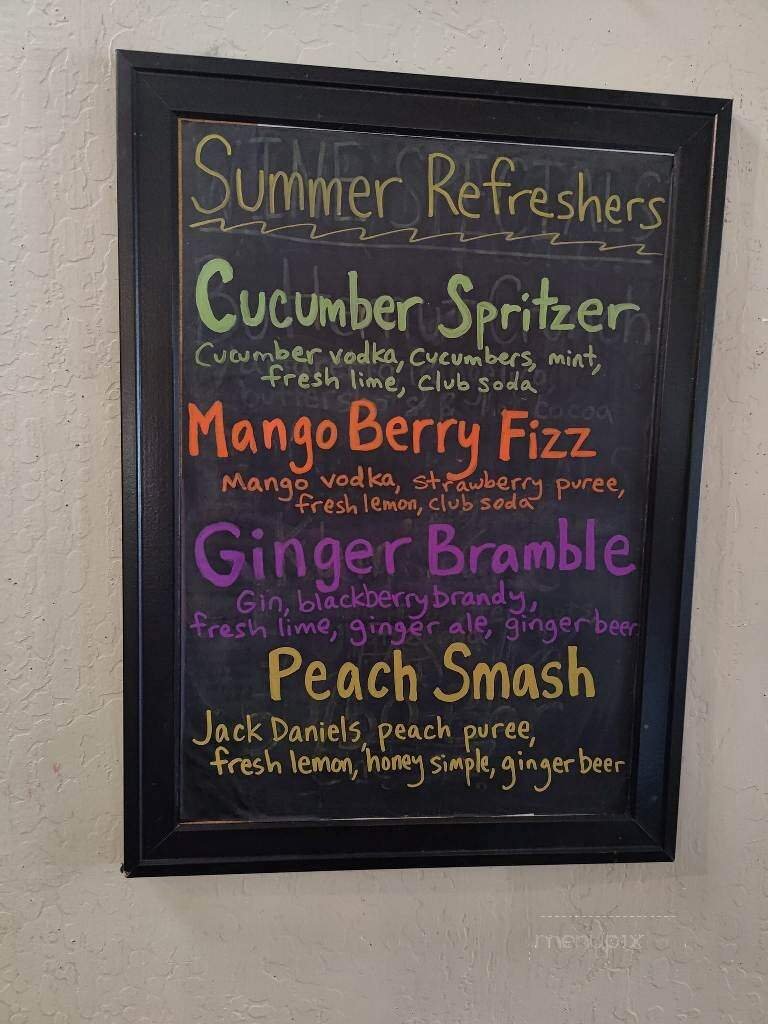 Summer Refreshers
Cucumber Spritzer
Cucumber vodka, cucumbers, mint,
fresh lime, club soda
Mango Berry Fizz
Mango vodka, strawberry puree,
fresh lemon, club soda
Ginger Bramble
Gin, blackberry brandy,
fresh lime, ginger ale, ginger beer
Peach Smash
Jack Daniels, peach puree,
fresh lemon, honey simple, ginger beer
menupix